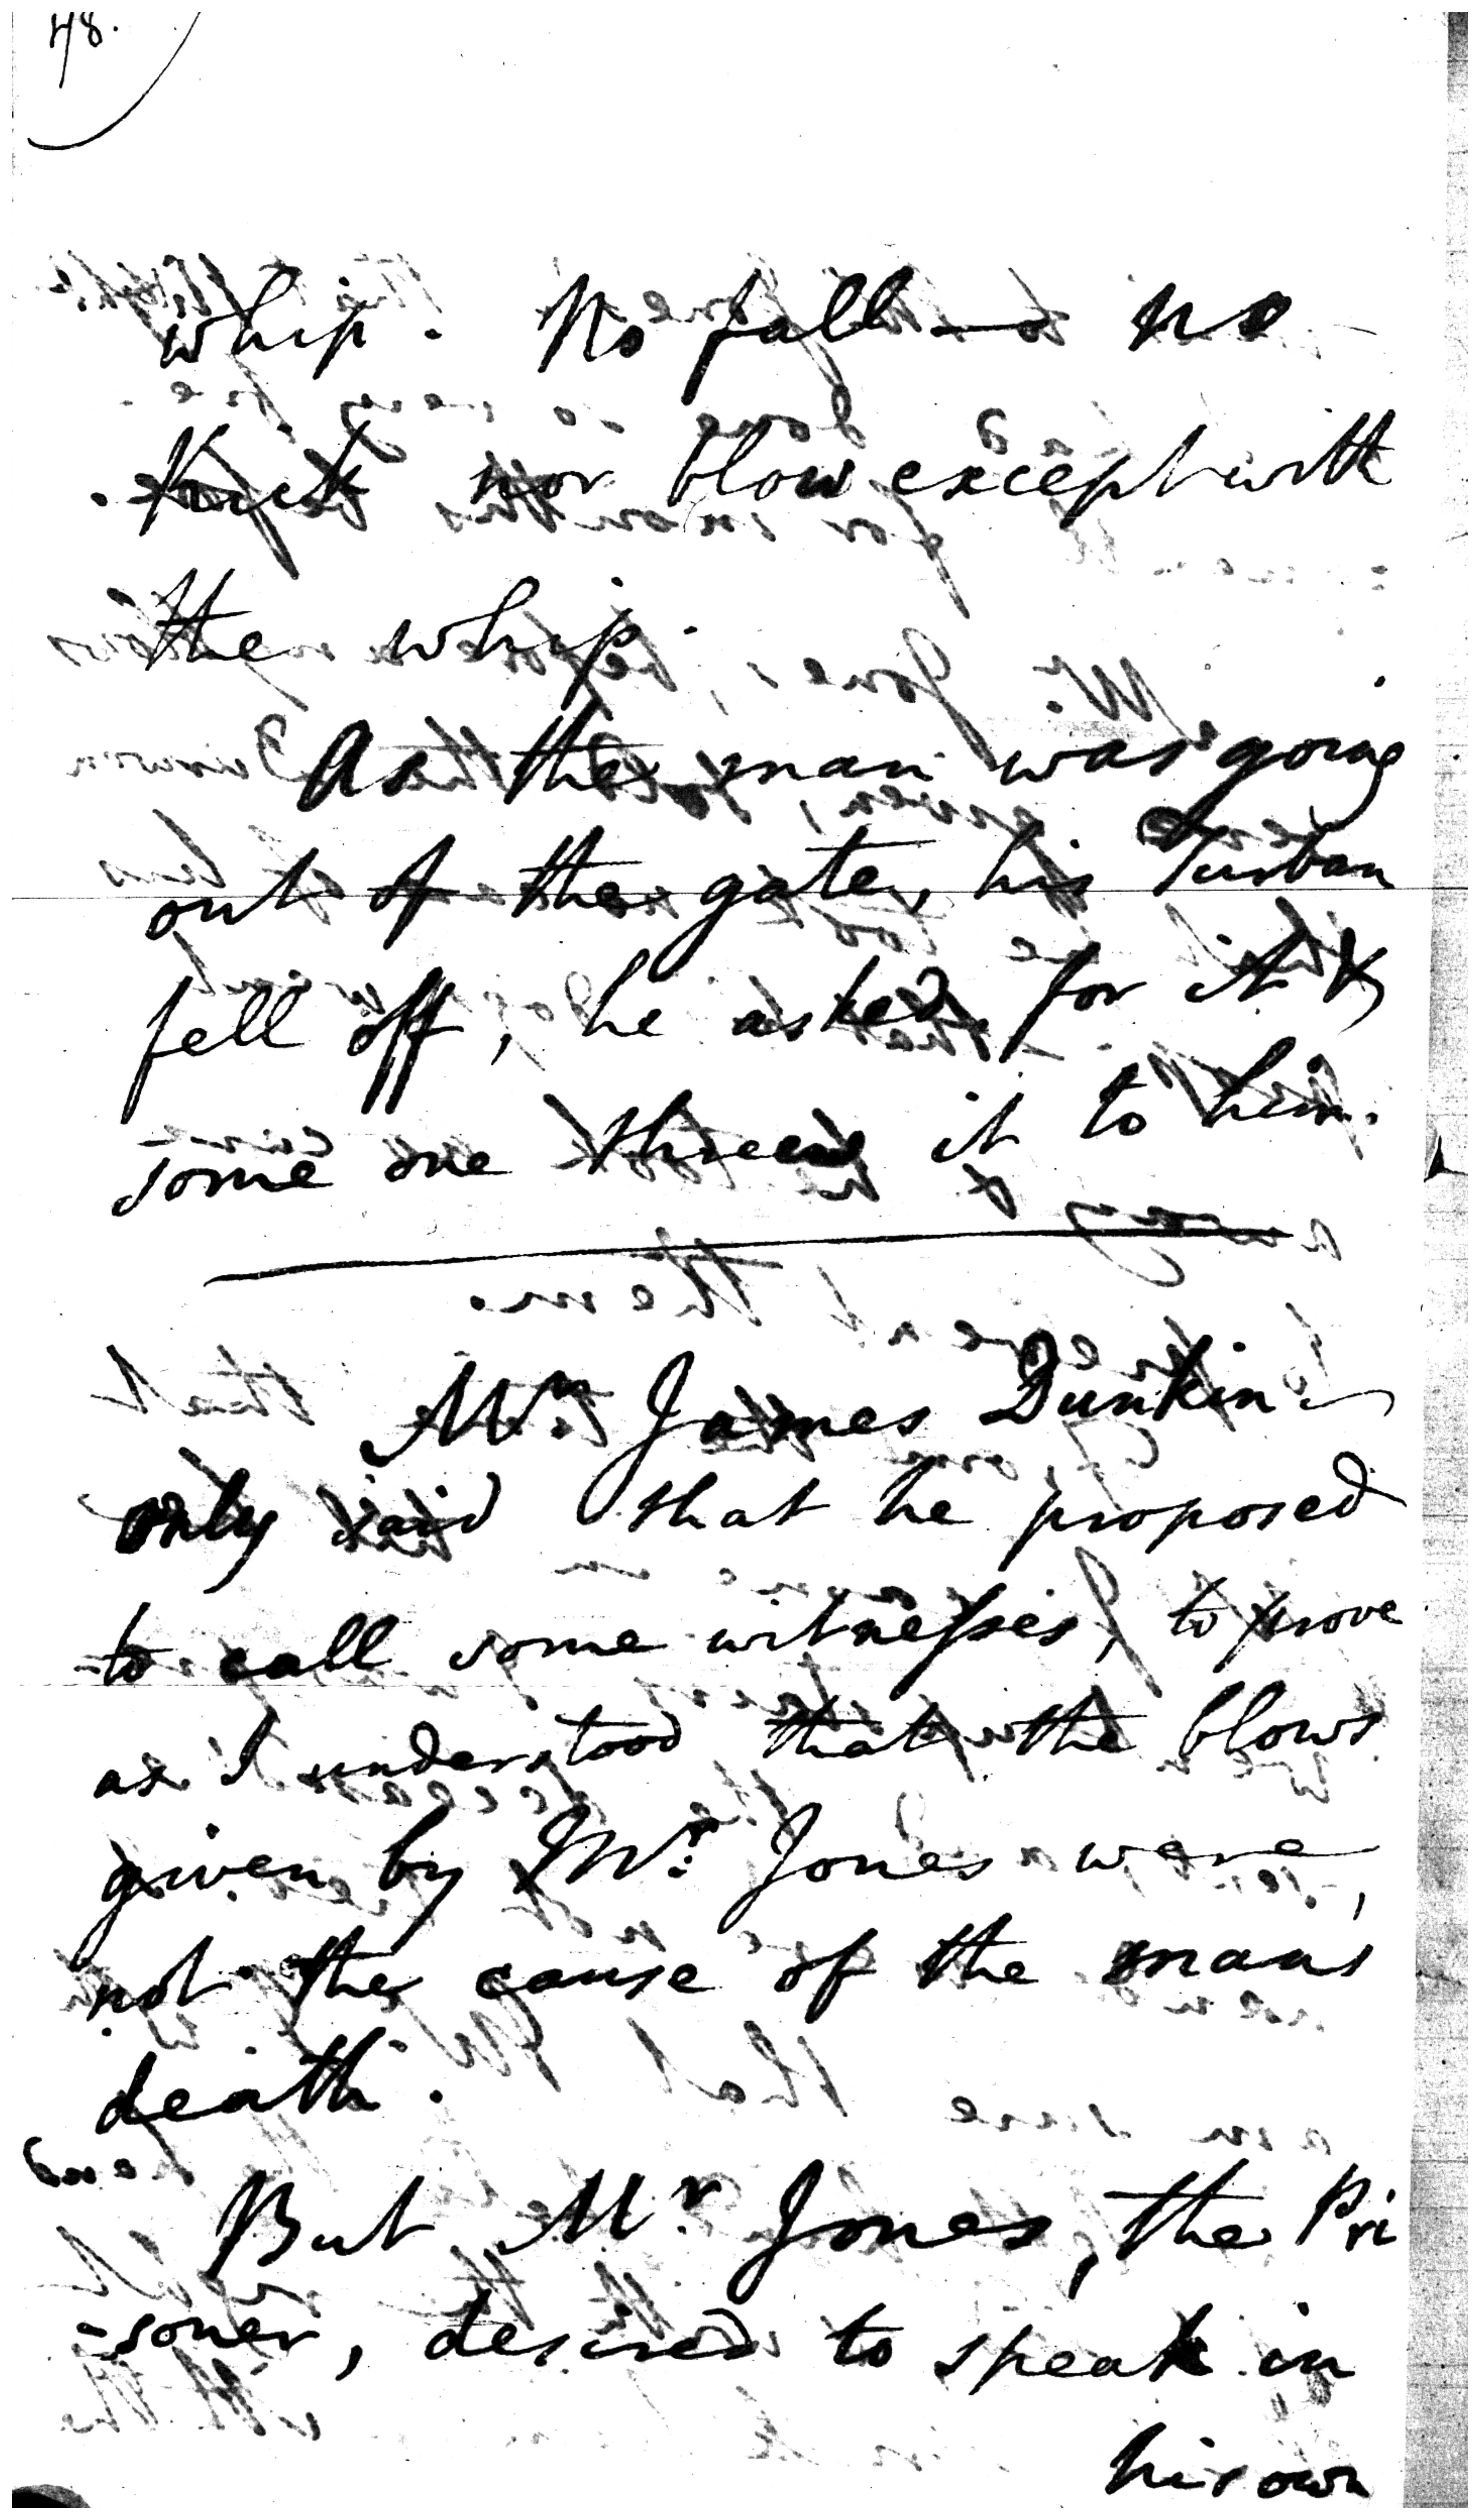 48.
whip. No fall — no
kick nor blow except with
the whip.
As the man was going
out of the gate, his Turban
fell off, he asked for it &
some one threw it to him.
Mr James Dunkin
only said that he proposed
to call some witnesses, to prove
as I understood that the blows
given by Mr. Jones were,
not the cause of the mans
death.
But Mr Jones, the Pri
-soner, desired to speak in
his own